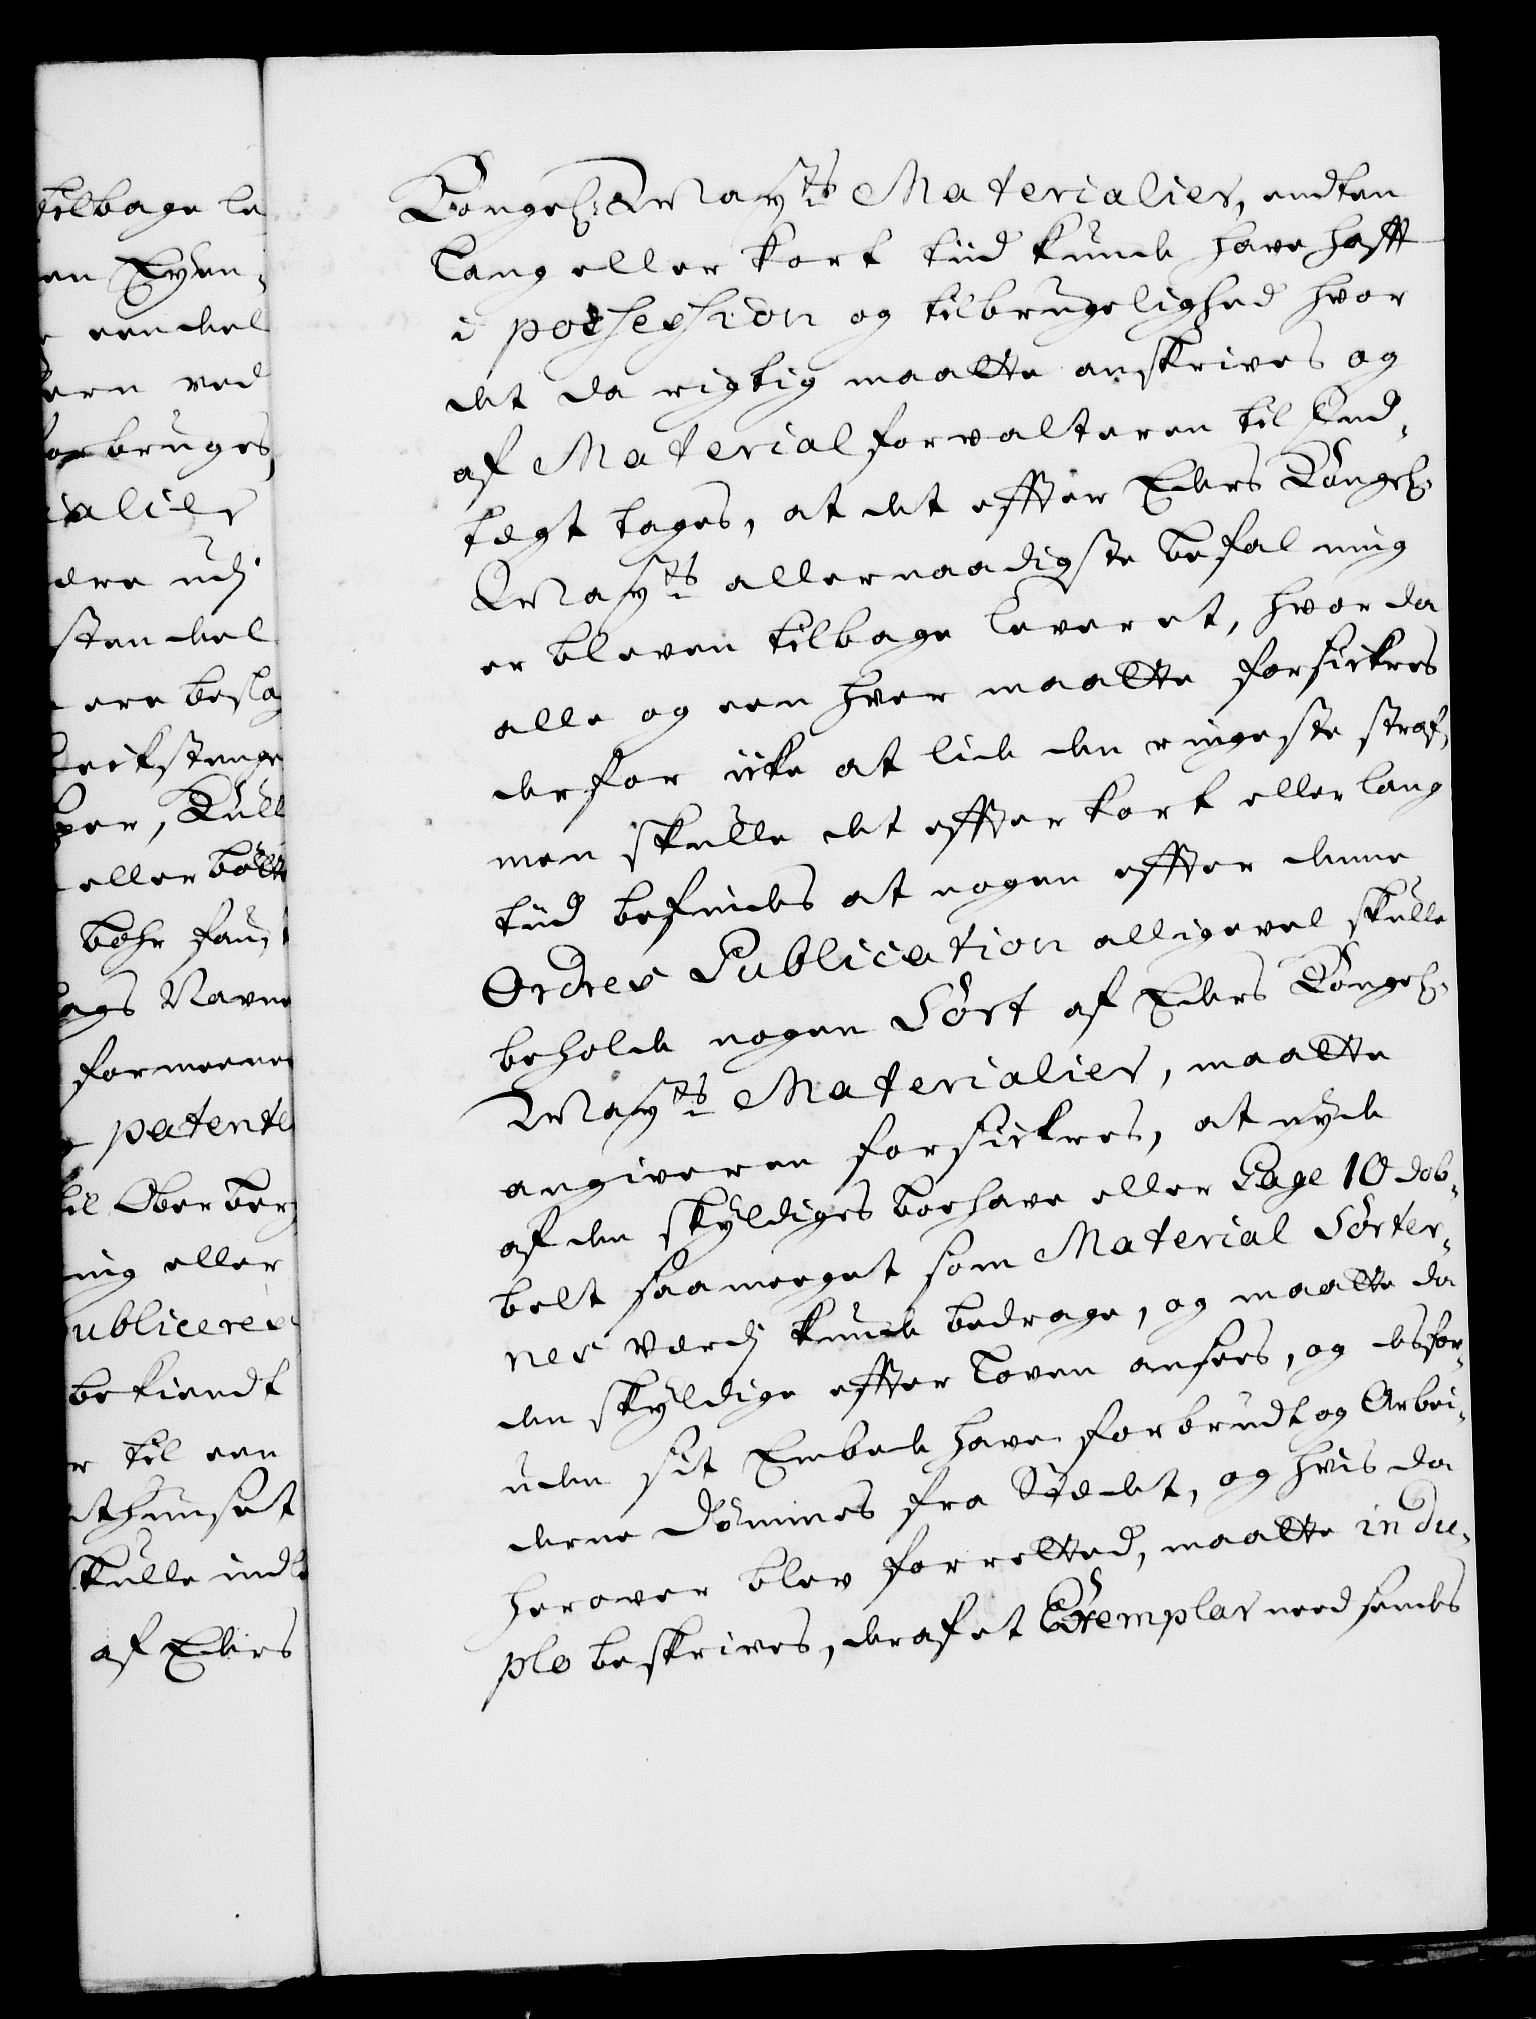 tilbage le
en Eyen-
eendeel
ern ved
forbruges,
ialier
være udj
sten deel
ere besla
per, Kull
eller bolte
bøhr faus
ags Navne
formeene
patente
til Ober Berg
ing eller
ubliceres
bekiendt
r til een
skulle indle
af Eders
Kongel: Mayts Materialier, endten
lang eller kort tiid kunde have hafft
i possession og tilbrugelighed hvor
det da rigtig maatte anskrives og
af Material forvalteren til Ind-
tegt tages, at det effter Eders Kongel:
Mayts allernaadigste befalning
er bleven tilbage leveret, hvor da
alle og een hver maatte forsickres
derfor icke at liide den ringeste straf,
men skulle det effter kort eller lang
tiid befindes at nogen effter denne
Ordres Publication alligevel skulle
beholde nogen Sort af Eders Kongel:
Mayts Materialier, maatte
angiveren forsickres, at nyde
af den skyldiges boehave eller Gage 10 dob-
belt saameeget som Material Sorter-
nes værdj kunde bedrage, og maatte da
den skyldige effter Loven ansees, og desfor-
uden sit Embede have forbrudt og Arbei-
derne dømmes fra Stædet, og hvis da
herover blev forretted, maatte in du-
plo beskrives, deraf et Exemplar need sendes